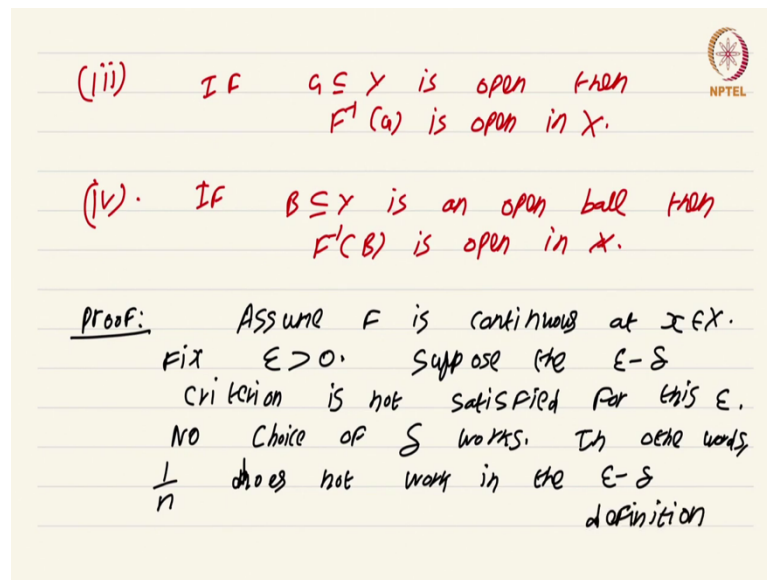 (iii) IF G ⊆ Y is open then
F⁻¹(G) is open in X.
NPTEL
(iv). IF B ⊆ Y is an open ball then
F⁻¹(B) is open in X.
Proof: Assume F is continuous at x ∈ X.
Fix ε > 0. Suppose the ε-δ
criterion is not satisfied for this ε.
No choice of δ works. In othe words,
1/n does not work in the ε-δ
definition